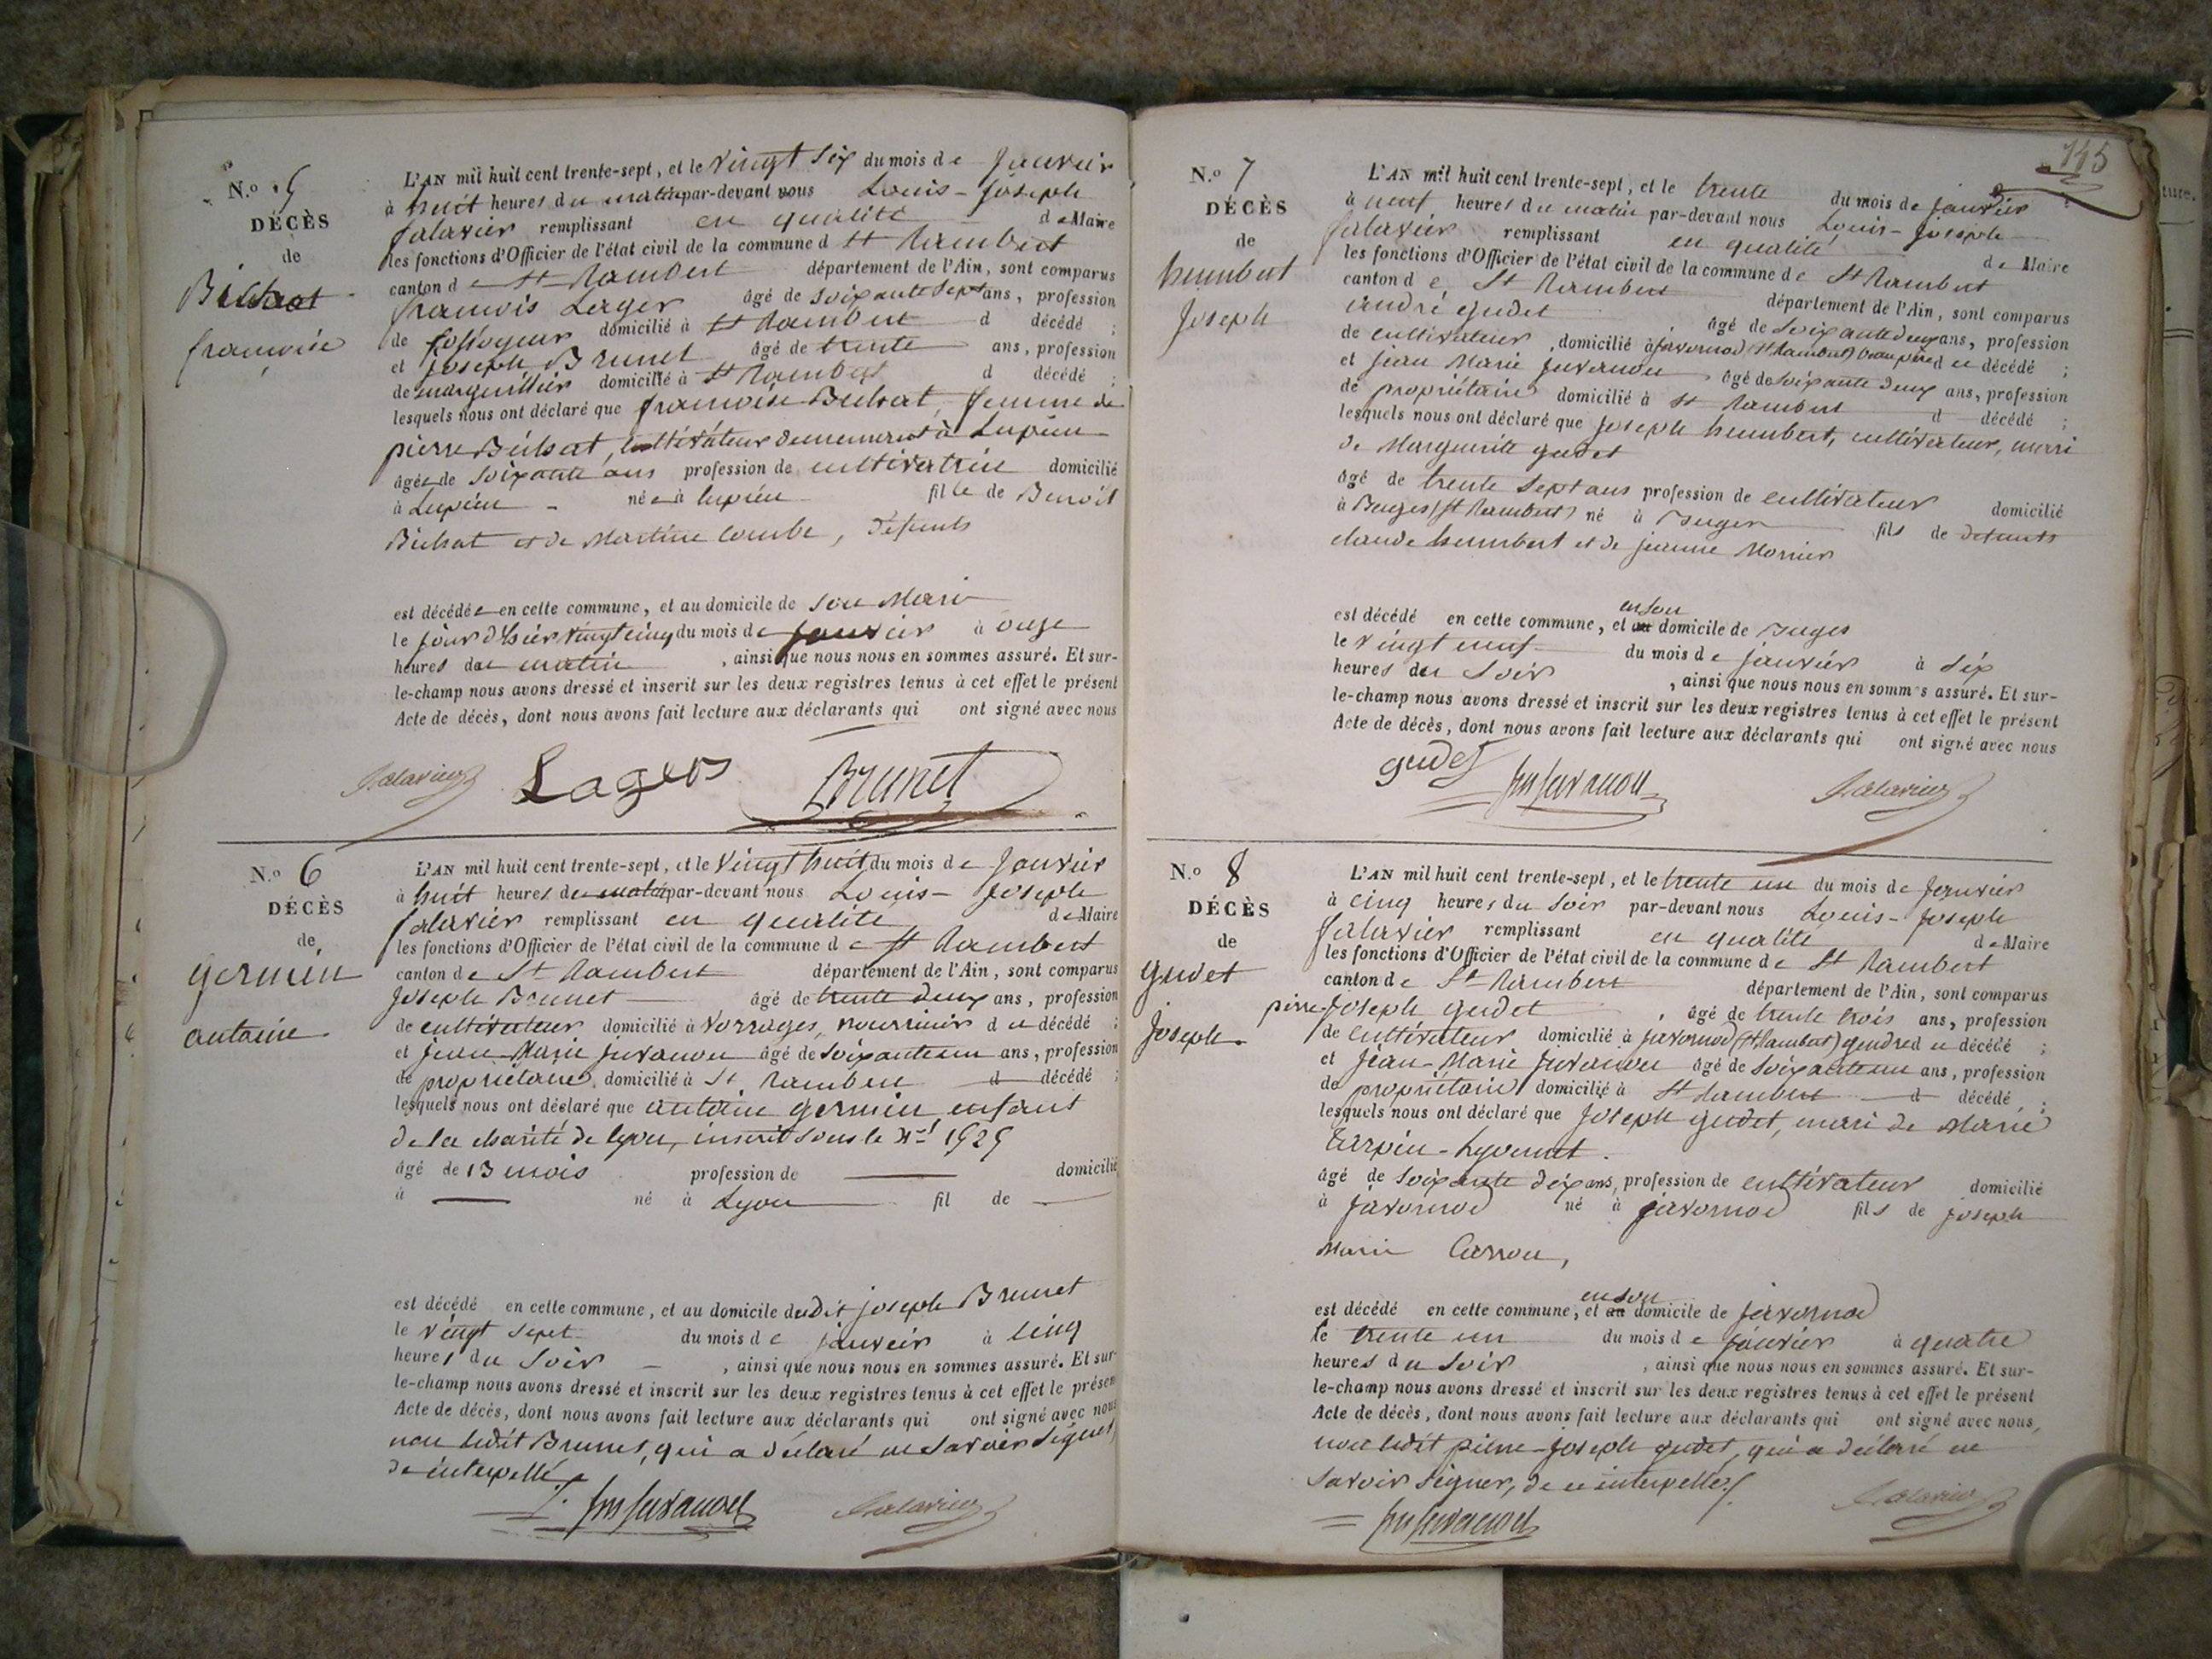 N.o 5
DÉCÈS
de
Bichat
françoise
L'AN mil huit cent trente-sept, et le Vingt Six du mois de Janvier
à huit heures du matin par-devant nous Louis-Joseph
Salavier remplissant en qualité de Maire
les fonctions d'Officier de l'état civil de la commune d St Rambert
canton de St Rambert département de l'Ain, sont comparus
françois Lager âgé de Soixante Sept ans, profession
de fossoyeur domicilié à St Rambert d décédé ;
et Joseph Brunet âgé de trente ans, profession
de marguillier domicilié à St Rambert d décédé ;
lesquels nous ont déclaré que françoise Bichat, femme de
pierre Bichat, cultivateur demeurant à Lupieu
âgée de Soixante ans profession de cultivatrice domicilié
à Lupieu née à lupieu fille de Benoît
Bichat et de Martine Combe, défunts
est décédée en cette commune, et au domicile de son Mari
le jour d'hier vingt cinq du mois de Janvier à onze
heures du matin , ainsi que nous nous en sommes assuré. Et sur-
le-champ nous avons dressé et inscrit sur les deux registres tenus à cet effet le présent
Acte de décès, dont nous avons fait lecture aux déclarants qui ont signé avec nous
Salavier Lager Brunet
N.o 6
DÉCÈS
de
Germein
antoine
L'AN mil huit cent trente-sept, et le Vingt huit du mois de Janvier
à huit heures du matin par-devant nous Louis-Joseph
Salavier remplissant en qualité de Maire
les fonctions d'Officier de l'état civil de la commune de St Rambert
canton de St Rambert département de l'Ain, sont comparus
Joseph Brunet âgé de trente deux ans, profession
de cultivateur domicilié à Vorages, nourricier du décédé ;
et Jean-Marie Juvanon âgé de Soixante un ans, profession
de propriétaire, domicilié à St Rambert d décédé ;
lesquels nous ont déclaré que antoine germein enfant
de la charité de lyon, inscrit sous le No 1525
âgé de 13 mois profession de domicilié
à né à Lyon fil de
est décédé en cette commune, et au domicile dudit joseph Brunet
le vingt sept du mois de janvier à cinq
heures du Soir , ainsi que nous nous en sommes assuré. Et sur-
le-champ nous avons dressé et inscrit sur les deux registres tenus à cet effet le présen
Acte de décès, dont nous avons fait lecture aux déclarants qui ont signé avec nous
non ledit Brunet, qui a déclaré ne savoir signer,
de interpellé.
Jn Juvanon Salavier
145
N.o 7
DÉCÈS
de
humbert
Joseph
L'AN mil huit cent trente-sept, et le trente du mois de janvier
à neuf heures du matin par-devant nous Louis-Joseph
Salavier remplissant en qualité de Maire
les fonctions d'Officier de l'état civil de la commune de St Rambert
canton de St Rambert département de l'Ain, sont comparus
andré gudet , âgé de Soixante deux ans, profession
de cultivateur , domicilié à javornod (St Rambert) beau père du décédé ;
et jean Marie Juvanon âgé de soixante deux ans, profession
de propriétaire domicilié à St Rambert d décédé ;
lesquels nous ont déclaré que joseph humbert, cultivateur, mari
de Marguerite gudet
âgé de trente Sept ans profession de cultivateur domicilié
à Buges (St Rambert) né à Buges fils de défunts
claude humbert et de jeanne Monnier
est décédé en cette commune, et au en son domicile de Buges
le Vingt neuf du mois de janvier à Six
heures du Soir , ainsi que nous nous en somm s assuré. Et sur-
le-champ nous avons dressé et inscrit sur les deux registres tenus à cet effet le présent
Acte de décès, dont nous avons fait lecture aux déclarants qui ont signé avec nous
gudet Jn Juvanon Salavier
N.o 8
DÉCÈS
de
gudet
Joseph
L'AN mil huit cent trente-sept, et le trente un du mois de Janvier
à cinq heures du Soir par-devant nous Louis-Joseph
Salavier remplissant en qualité de Maire
les fonctions d'Officier de l'état civil de la commune de St Rambert
canton de St Rambert département de l'Ain, sont comparus
pierre-Joseph gudet , âgé de trente trois ans, profession
de cultivateur domicilié à javornod (St Rambert) gendre du décédé ;
et Jean-Marie Juvanon âgé de Soixante un ans, profession
de propriétaire domicilié à St Rambert d décédé ;
lesquels nous ont déclaré que Joseph gudet, mari de Marie
Tarpin-
âgé de Soixante dix ans, profession de cultivateur domicilié
à javornod né à javornod fils de joseph
Marie Carron,
est décédé en cette commune, et au en son domicile de javornod
le trente un du mois de janvier à quatre
heures du Soir , ainsi que nous nous en sommes assuré. Et sur-
le-champ nous avons dressé et inscrit sur les deux registres tenus à cet effet le présent
Acte de décès, dont nous avons fait lecture aux déclarants qui ont signé avec nous,
non ledit pierre-joseph gudet, qui a déclaré ne
savoir signer, de ce interpellé.
Jn Juvanon Salavier